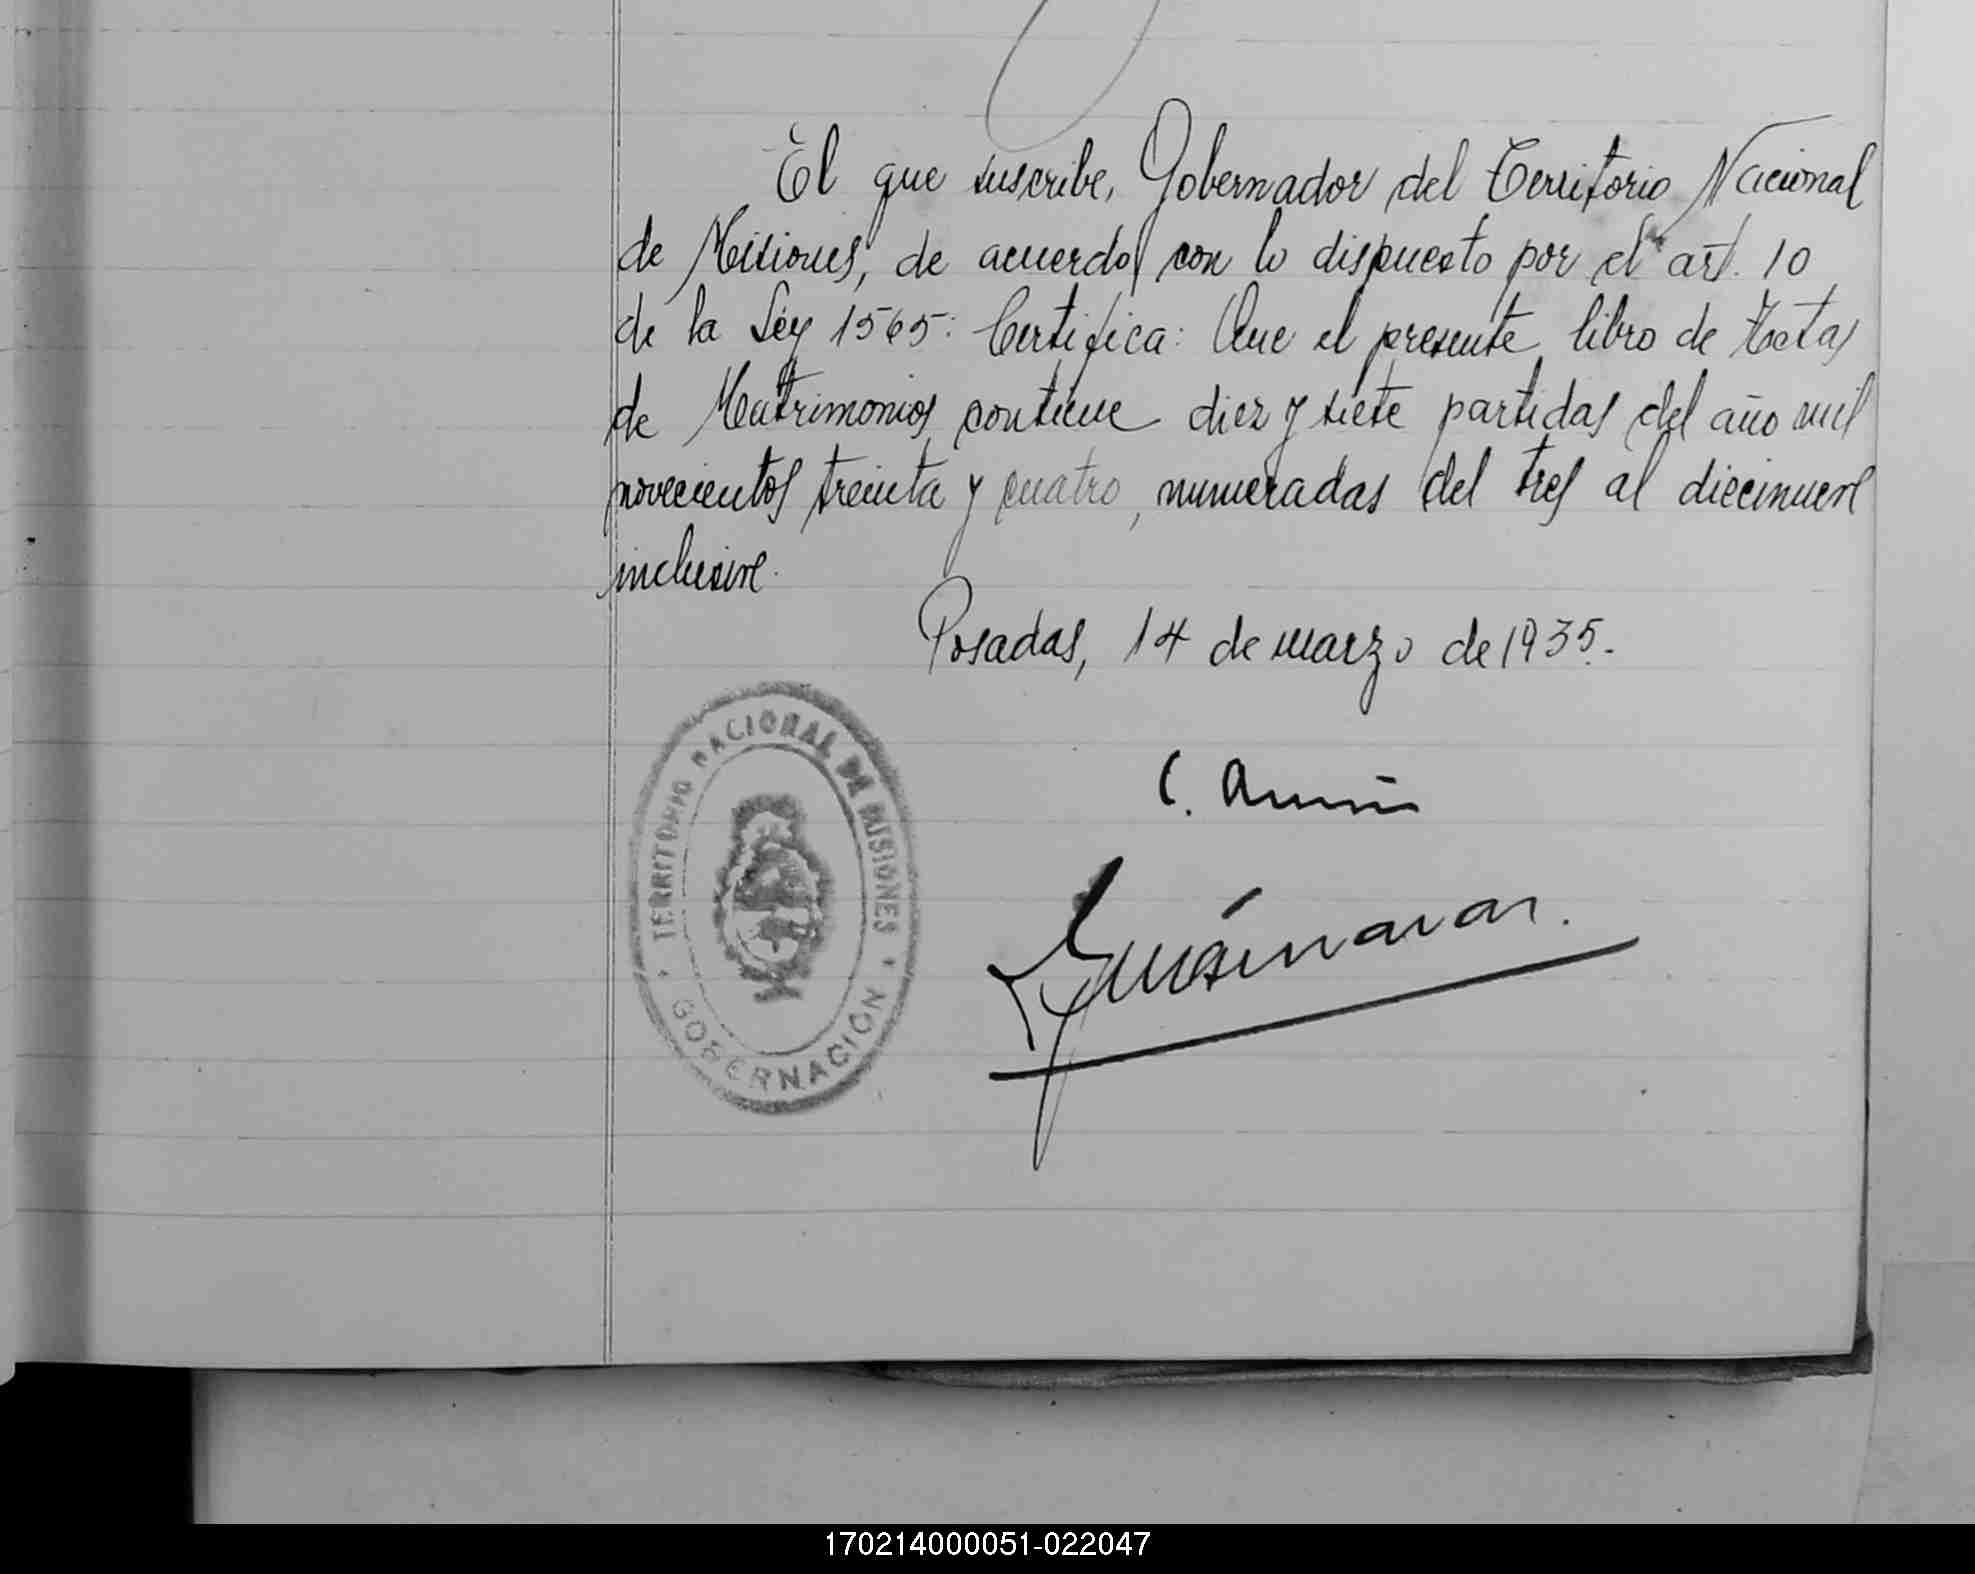 El que suscribe, Gobernador del Territorio Nacional
de Misiones, de acuerdo con lo dispuesto por el art. 10
de la Ley 1565: Certifica: Que el presente libro de Actas
de Matrimonios contiene diez y siete partidas del año mil
novecientos treinta y cuatro, numeradas del tres al diecinueve
inclusive.
Posadas, 14 de marzo de 1935.-
TERRITORIO NACIONAL DE MISIONES
GOBERNACIÓN
C.
170214000051-022047